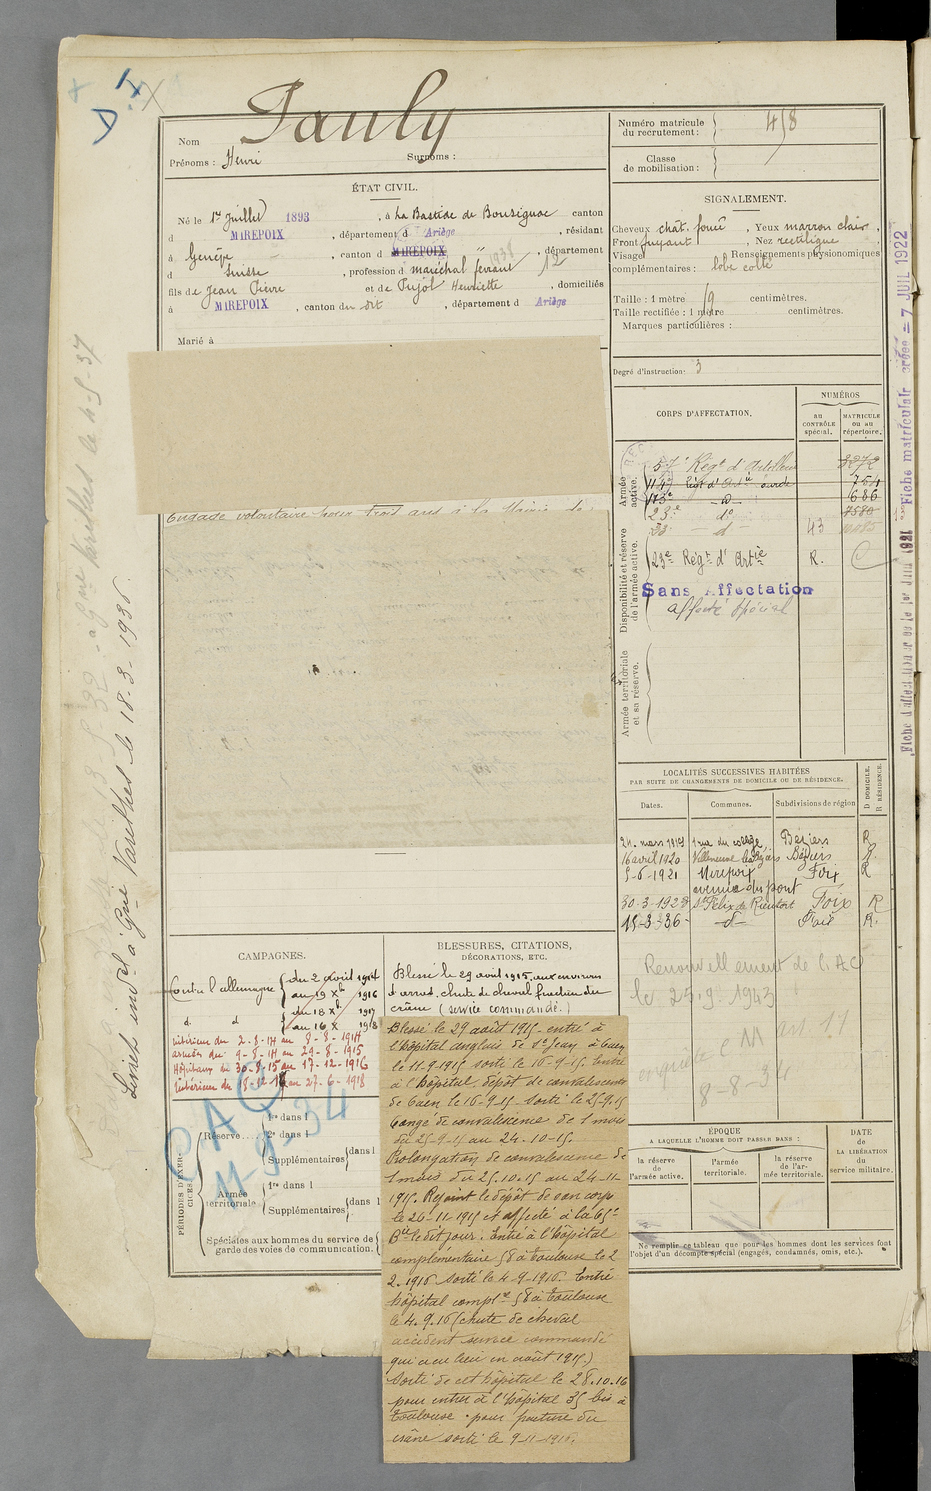 Pauly
Nom
Prénoms : Henri Surnoms :
Numéro matricule du recrutement :
Classe de mobilisation :
ÉTAT CIVIL.
Né le 1er Juillet 1893 , à La Bastide de Bousignac canton
d MIREPOIX , département d Ariège , résidant
à Genève , canton d MIREPOIX " , département
d Suisse , profession d maréchal ferrant
fils de Jean Pierre et de Pujol Henriette , domiciliés
à MIREPOIX , canton du dit , département d Ariège
Marié à
SIGNALEMENT.
Cheveux chât. foncé , Yeux marron clair ,
Front fuyant , Nez rectiligne ,
Visage Renseignements physionomiques
complémentaires : lobe collé
Taille : 1 mètre centimètres.
Taille rectifiée : 1 mètre centimètres.
Marques particulières :
Degré d'instruction : 3
CORPS D'AFFECTATION.
NUMÉROS
au CONTRÔLE spécial.
MATRICULE ou au répertoire.
Armée active.
57e Régt d'Artillerie
114e Régt d'Artie lourde 764
113e d° 686
23e d° 7580
23e d 43
Disponibilité et réserve de l'armée active.
23e Régt d'Artie R.
Sans Affectation
affecté spécial
Armée territoriale et sa réserve.
Engagé volontaire pour trois ans à la Mairie de
LOCALITÉS SUCCESSIVES HABITÉES
PAR SUITE DE CHANGEMENTS DE DOMICILE OU DE RÉSIDENCE.
Dates. Communes. Subdivisions de région D DOMICILE. R RÉSIDENCE.
24 mars 1919 1 rue du collège, Béziers R
16 avril 1920 Villeneuve les Béziers Béziers R.
5-6-1921 Mirepoix Foix R
avenue du pont
30-3-1928 St Félix de Rieutort Foix R
15-3-36 d° Foix R.
Renouvellement de l'A.S
le 25.9.1943
8-8-34
CAMPAGNES.
Contre l'allemagne du 2 août 1914
au 19 Xbre 1916
d° d° du 18 Xbre 1917
au 16 X 1918
Intérieur du 2-8-14 au 8-8-1914
armées du 9-8-14 au 29-8-1915
Hôpitaux du 30-8-15 au 17-12-1916
Intérieur du 18-12-16 au 27-6-1918
BLESSURES, CITATIONS,
DÉCORATIONS, ETC.
Blessé le 29 août 1915, aux environs
d'arras, chute de cheval fracture du
crâne (service commandé.)
Blessé le 29 août 1915 - entré à
l'hôpital anglais de St Jean à Caen
le 11-9-1915 sorti le 16-9-15. Entré
à l'hôpital dépôt de convalescents
de Caen le 16-9-15 sorti le 25-9-15
Congé de convalescence de 1 mois
du 25-9-15 au 24-10-15.
Prolongation de convalescence de
1 mois du 25.10.15 au 24-11-
1915. Rejoint le dépôt de son corps
le 26-11-1915 et affecté à la 65e
Bie le dit jour. Entré à l'hôpital
complémentaire 58 à Toulouse le 2
2.1916 sorti le 4-9-1916. Entré
hôpital complre 58 à Toulouse
le 4.9.16 (chute de cheval
accident service commandé
qui a eu lieu en août 1915.)
Sorti de cet hôpital le 28.10.16
pour entrer à l'hôpital 35 bis à
Toulouse pour fracture du
crâne sorti le 9-11-1916.
PÉRIODES D'EXERCICES
Réserve 1re dans l
2e dans l
Supplémentaires dans l
Armée territoriale 1re dans l
Supplémentaires dans l
Spéciales aux hommes du service de
garde des voies de communication.
11-9-34
ÉPOQUE
A LAQUELLE L'HOMME DOIT PASSER DANS :
la réserve de l'armée active.
l'armée territoriale.
la réserve de l'armée territoriale.
DATE de LA LIBÉRATION du service militaire.
Ne remplir ce tableau que pour les hommes dont les services font
l'objet d'un décompte spécial (engagés, condamnés, omis, etc.).
Livret indel à Gne Varilhes le 18-3-1936.
Gne Varilhes le 4-5-37
Fiche matriculaire créée = 7 JUIL 1922